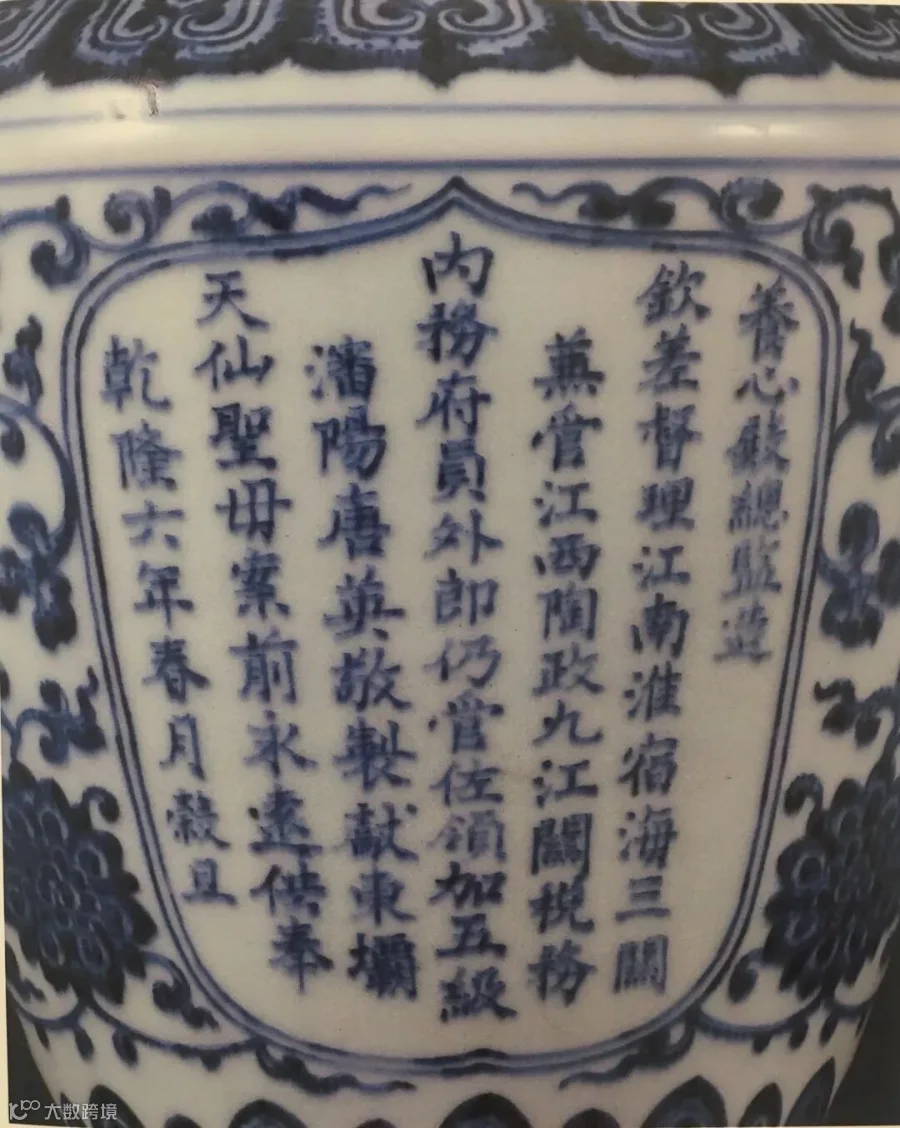 養心殿總監造
欽差督理江南淮宿海三關
蕪管江西陶政九江關稅務
內務府員外郎仍管佐領加五級
瀋陽唐英敬製獻東壩
天仙聖母案前永遠供奉
乾隆六年春月穀旦
大数跨境